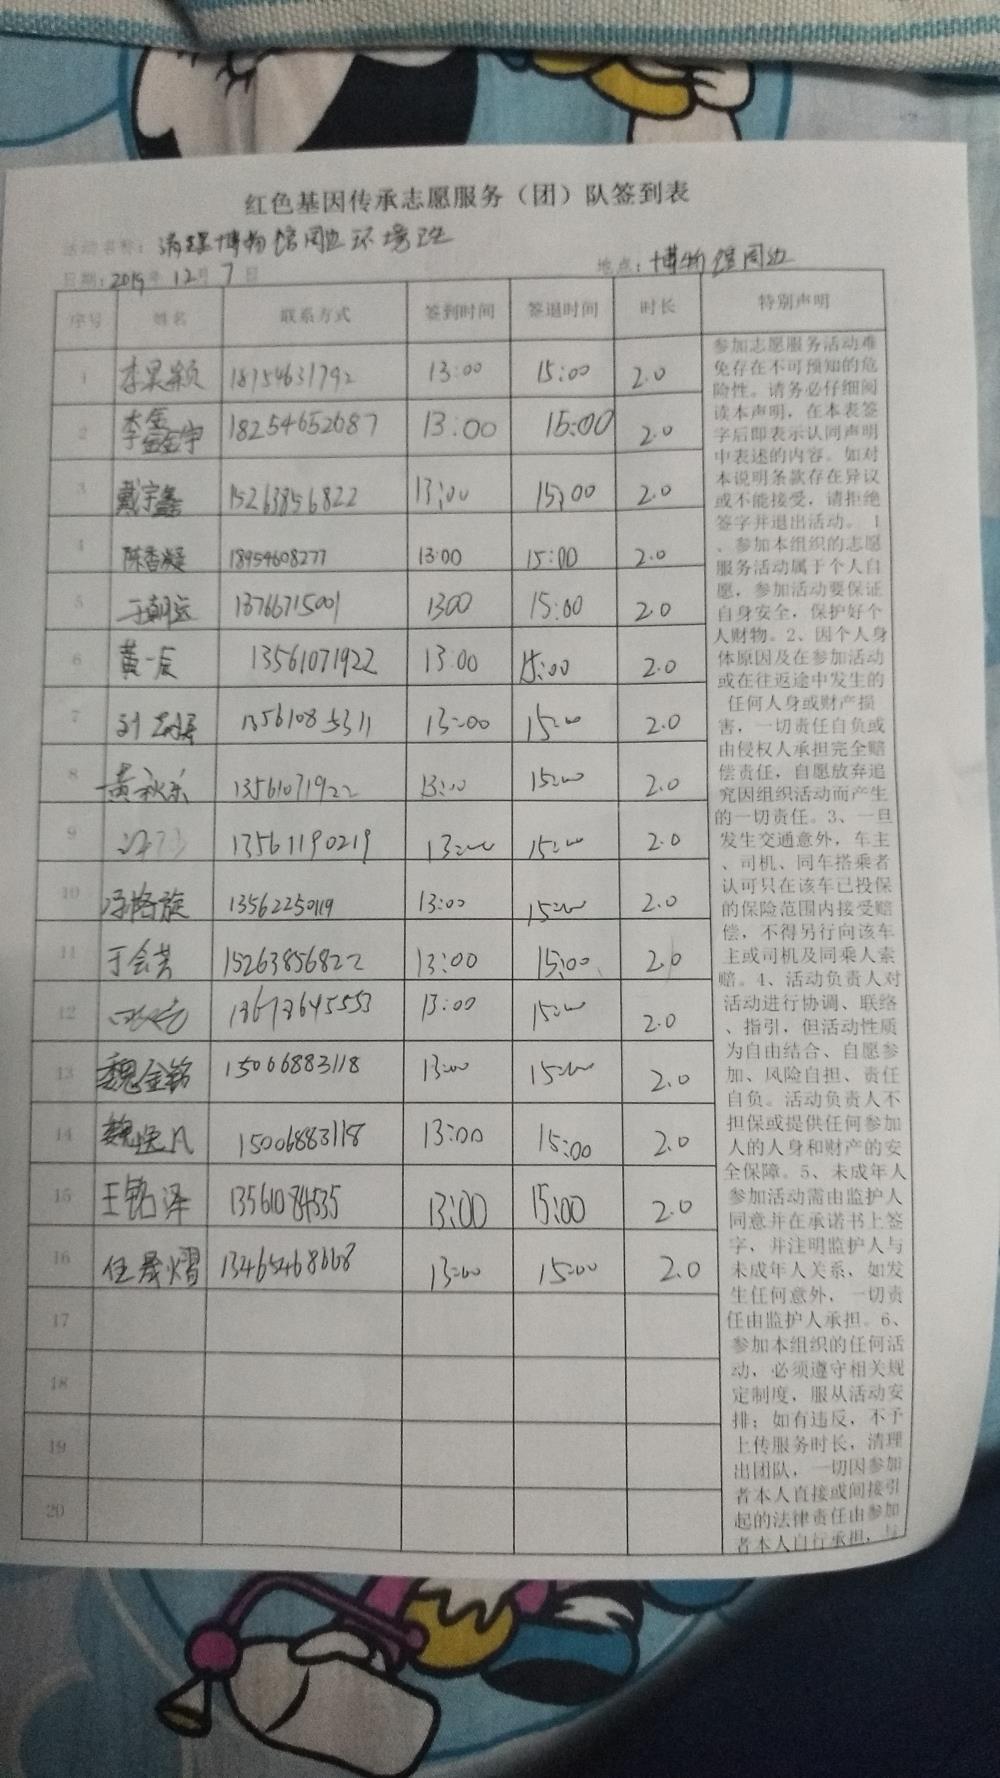 红色基因传承志愿服务（团）队签到表
活动名称：清理博物馆周边环境
日期：2019年12月7日 地点：博物馆周边
序号 姓名 联系方式 签到时间 签退时间 时长 特别声明
1 李果颖 18754631792 13:00 15:00 2.0
2 李金 18254652687 13:00 15:00 2.0
3 戴宇鑫 15263856822 13:00 15:00 2.0
4 陈香凝 18954608277 13:00 15:00 2.0
5 于朝运 13766715001 1300 15:00 2.0
6 黄一辰 13561071922 13:00 15:00 2.0
7 刘 13561085311 13:00 15:00 2.0
8 黄秋乐 13561071922 13:00 15:00 2.0
9 13561190219 13:00 15:00 2.0
10 路旋 13562250119 13:00 15:00 2.0
11 于会芳 15263856822 13:00 15:00 2.0
12 13673645553 13:00 15:00 2.0
13 魏金铭 15066883118 13:00 15:00 2.0
14 魏悦凡 15006883118 13:00 15:00 2.0
15 王铭泽 1356184535 13:00 15:00 2.0
16 任晟熠 13465468668 13:00 15:00 2.0
17
18
19
20
参加志愿服务活动难
免存在不可预知的危
险性。请务必仔细阅
读本声明，在本表签
字后即表示认同声明
中表述的内容。如对
本说明条款存在异议
或不能接受，请拒绝
签字并退出活动。 1
、参加本组织的志愿
服务活动属于个人自
愿，参加活动要保证
自身安全，保护好个
人财物。2、因个人身
体原因及在参加活动
或在往返途中发生的
任何人身或财产损
害，一切责任自负或
由侵权人承担完全赔
偿责任，自愿放弃追
究因组织活动而产生
的一切责任。3、一旦
发生交通意外，车主
、司机、同车搭乘者
认可只在该车已投保
的保险范围内接受赔
偿，不得另行向该车
主或司机及同乘人索
赔。4、活动负责人对
活动进行协调、联络
、指引，但活动性质
为自由结合、自愿参
加、风险自担、责任
自负。活动负责人不
担保或提供任何参加
人的人身和财产的安
全保障。5、未成年人
参加活动需由监护人
同意并在承诺书上签
字，并注明监护人与
未成年人关系，如发
生任何意外，一切责
任由监护人承担。6、
参加本组织的任何活
动，必须遵守相关规
定制度，服从活动安
排；如有违反，不予
上传服务时长，清理
出团队，一切因参加
者本人直接或间接引
起的法律责任由参加
者本人自行承担，与